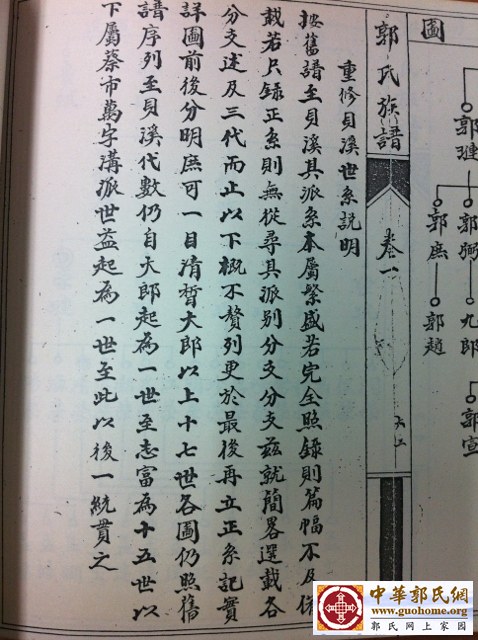 圖
郭璉
郭弼
九郎
郭宣
郭庶
郭趙
郭氏族譜
卷一
重修貝溪世系説明
按舊譜至貝溪其派系本屬繁盛若完全照録則篇幅不及俻
載若只録正系則無從尋其派别分支分支兹就簡畧選載各
分支述及三代而止以下概不贅列更於最後再立正系記實
詳圖前後分明庶可一目清晳大郎以上十七世各圖仍照舊
譜序列至貝溪代數仍自大郎起為一世至志富為十五世以
下屬蔡市萬字溝派世益起為一世至此以後一統貫之
中華郭氏網
www.guohome.org
郭氏网上家园